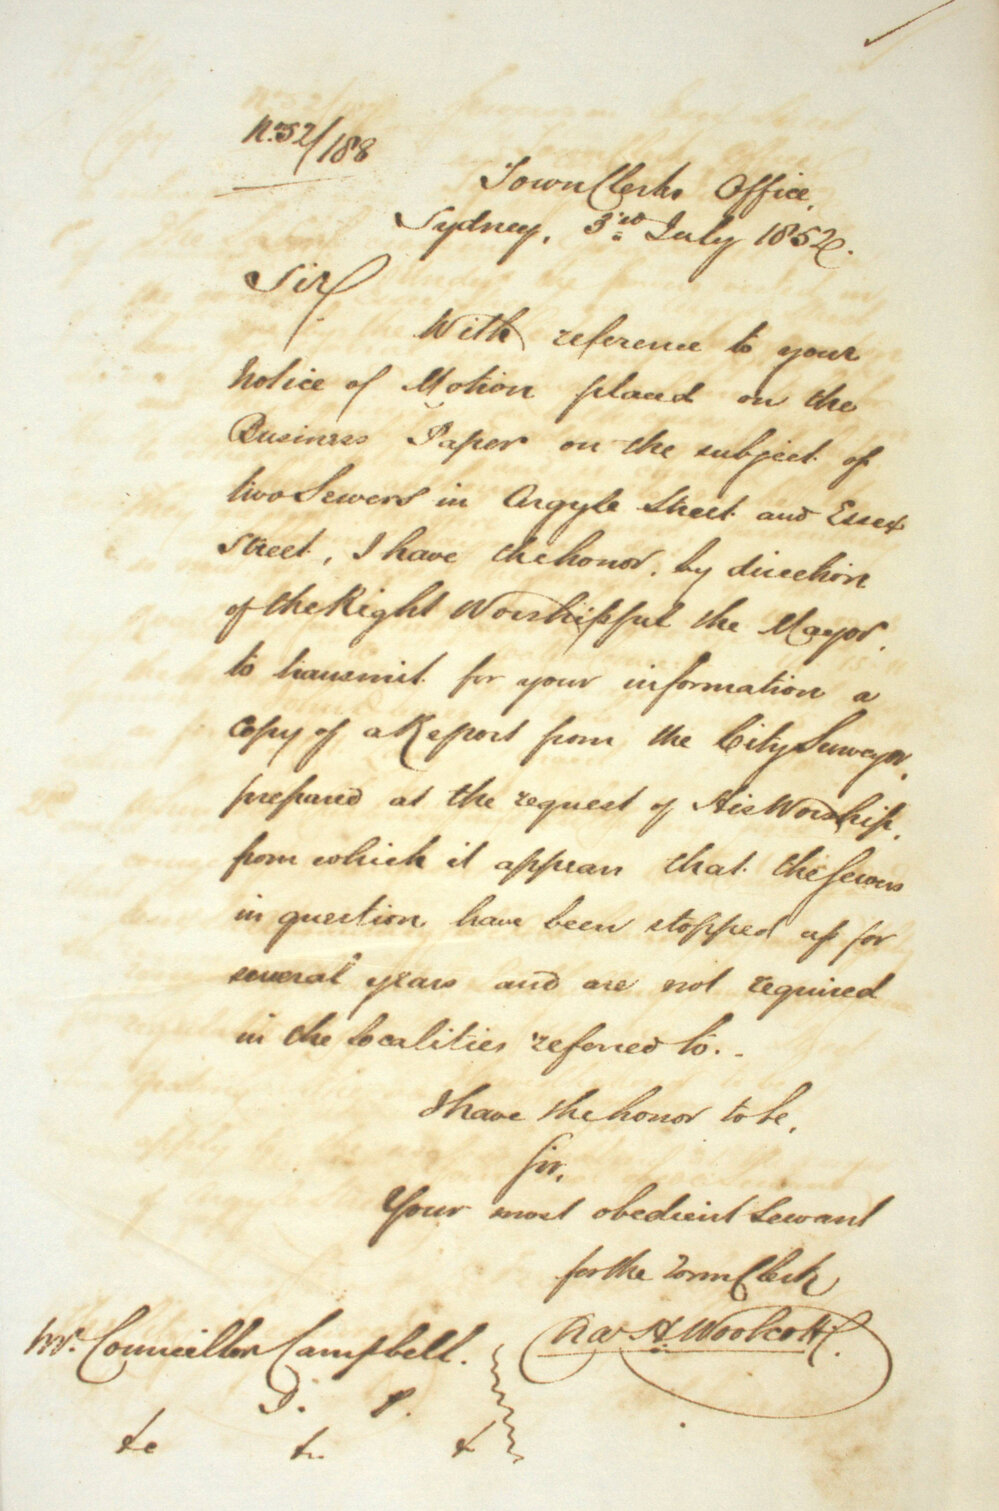 No. 52/188
Town Clerks Office,
Sydney, 3rd July 1852.
Sir,
With reference to your
Notice of Motion placed on the
Business Paper on the subject of
two Sewers in Argyle Street and Essex
Street, I have the honor, by direction
of the Right Worshipful the Mayor,
to transmit for your information a
Copy of a Report from the City Surveyor,
prepared at the request of His Worship,
from which it appears that the Sewers
in question have been stopped up for
several years and are not required
in the localities referred to.
I have the honor to be,
Sir,
Your most obedient Servant
for the Town Clerk
H. Woolcott
Mr. Councillor Campbell.
&c &c &